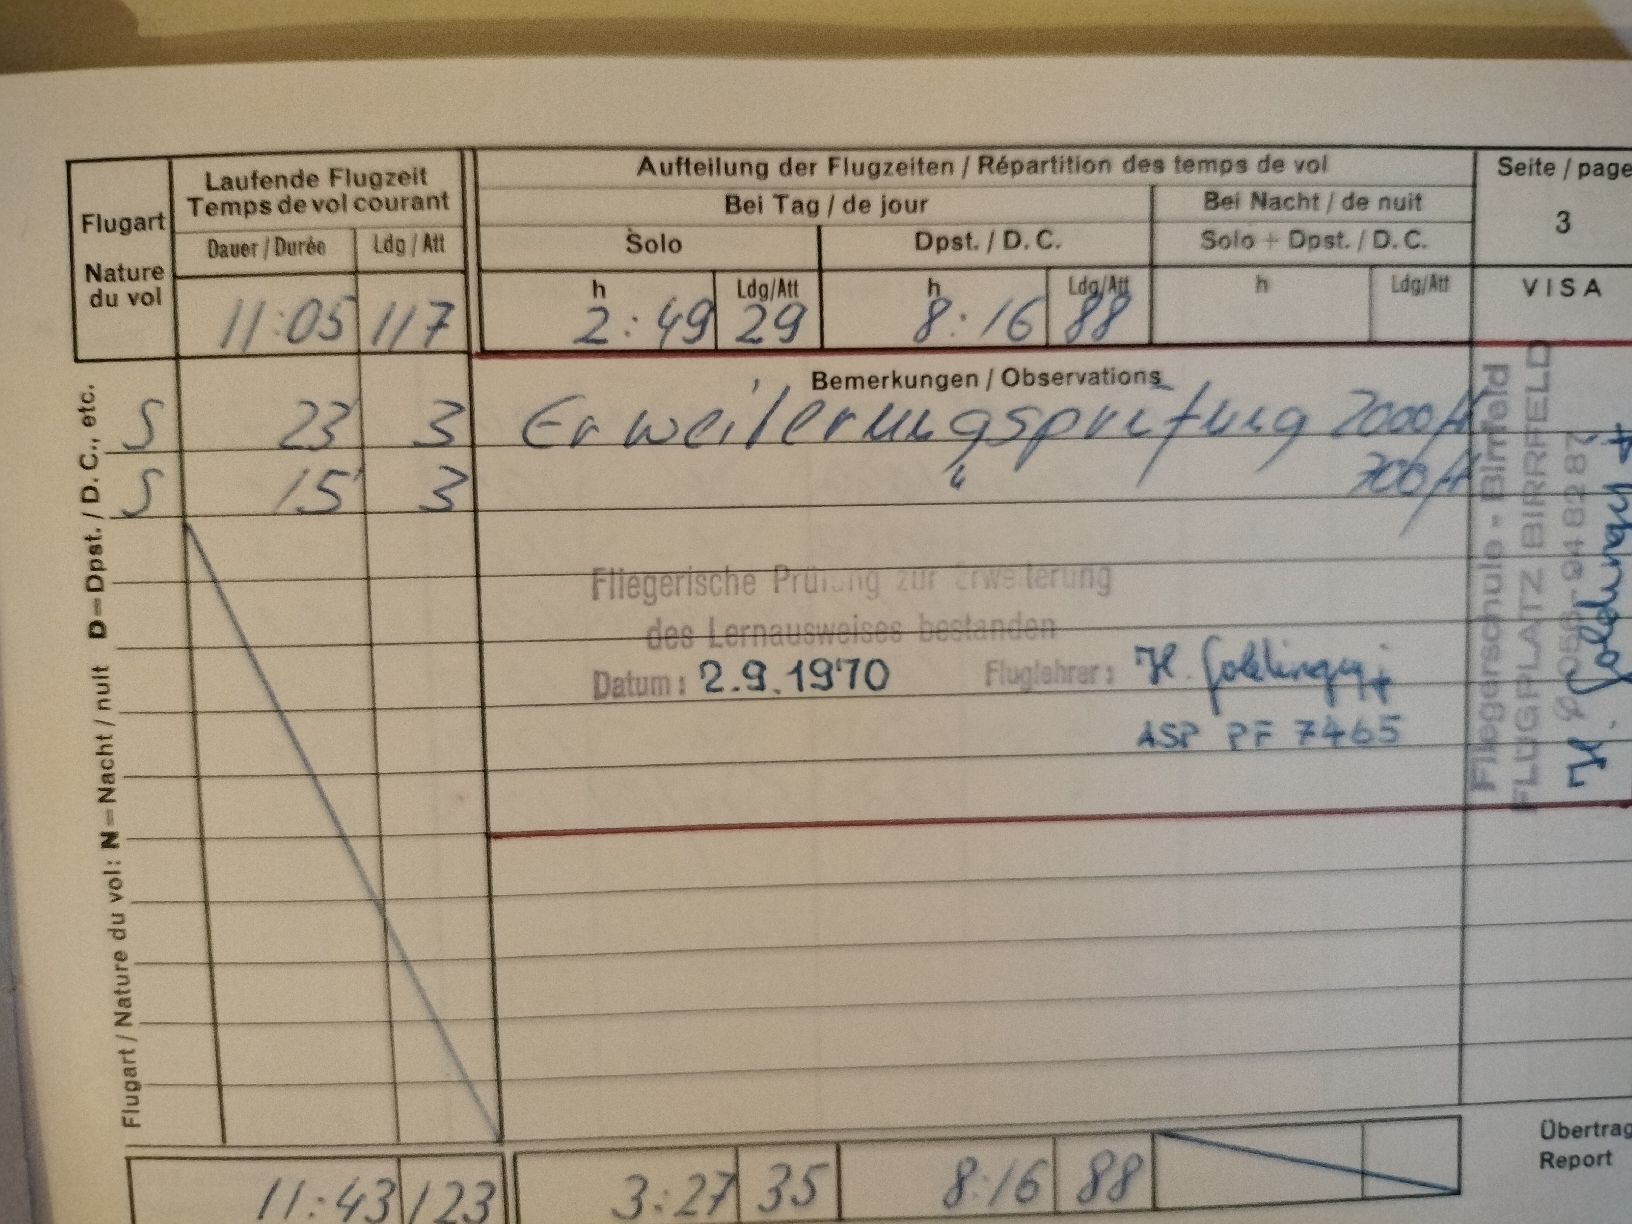 Flugart
Nature
du vol
Laufende Flugzeit
Temps de vol courant
Dauer / Durée Ldg / Att
11:05 117
Aufteilung der Flugzeiten / Répartition des temps de vol
Bei Tag / de jour Bei Nacht / de nuit
Solo Dpst. / D. C. Solo + Dpst. / D. C.
h Ldg/Att h Ldg/Att h Ldg/Att
2:49 29 8:16 88
Seite / page
3
VISA
Bemerkungen / Observations
S 23' 3 Erweiterungsprüfung 2000 ft
S 15' 3 " 700 ft
Fliegerische Prüfung zur Erweiterung
des Lernausweises bestanden
Datum: 2.9.1970 Fluglehrer: H. Goldinger
ASP PF 7465
Fliegerschule - Birrfeld
FLUGPLATZ BIRRFELD
056 - 94 82 87
H. Goldinger
Flugart / Nature du vol: N = Nacht / nuit D = Dpst. / D. C., etc.
11:43 123 3:27 35 8:16 88
Übertrag
Report